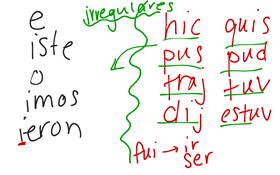 irregulares
e
iste
o
imos
ieron
hic quis
pus pud
traj tuv
dij estuv
fui → ir
ser